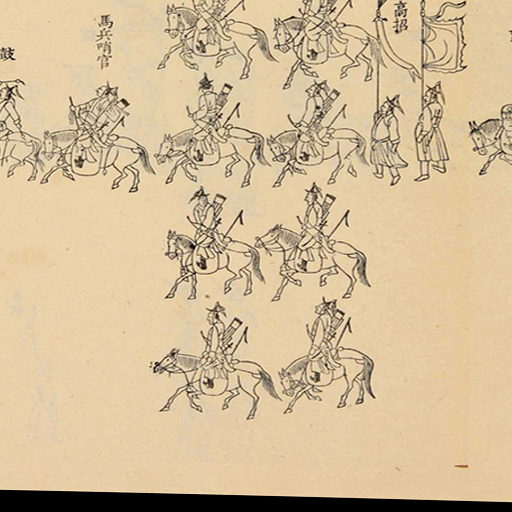 高招
馬兵哨官
鼓